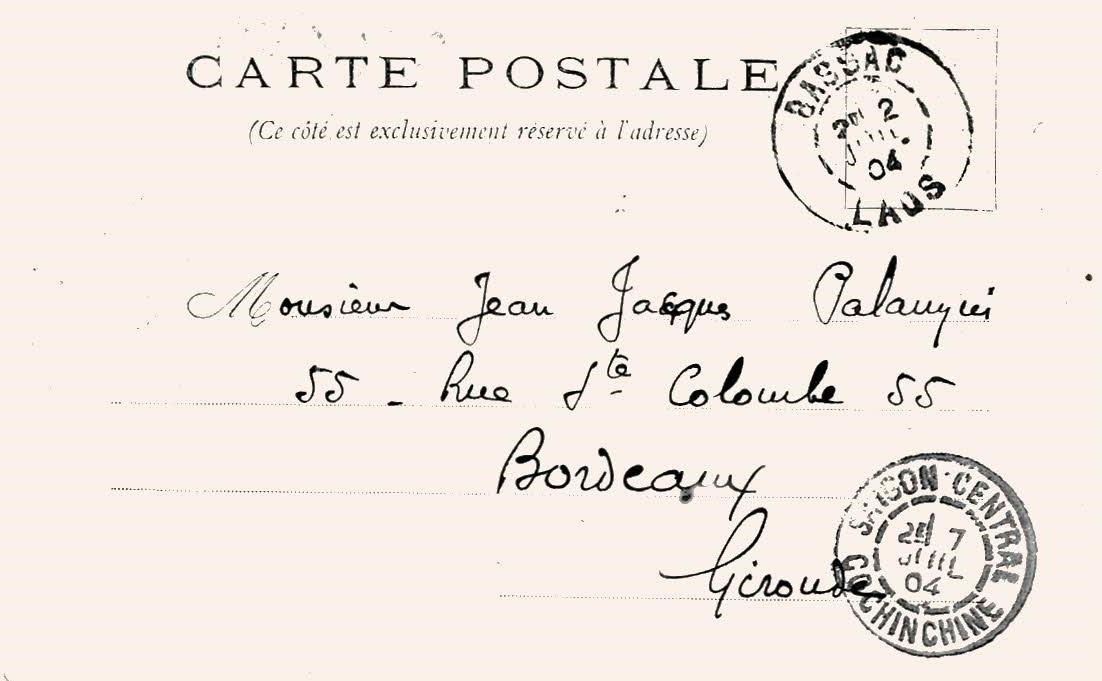 CARTE POSTALE
(Ce côté est exclusivement réservé à l'adresse)
BASSAC
2E 2
JUIL
04
LAOS
Monsieur Jean Jacques
55 - Rue Ste Colombe 55
Bordeaux
Gironde
SAIGON-CENTRAL
2E 7
JUIL
04
COCHINCHINE